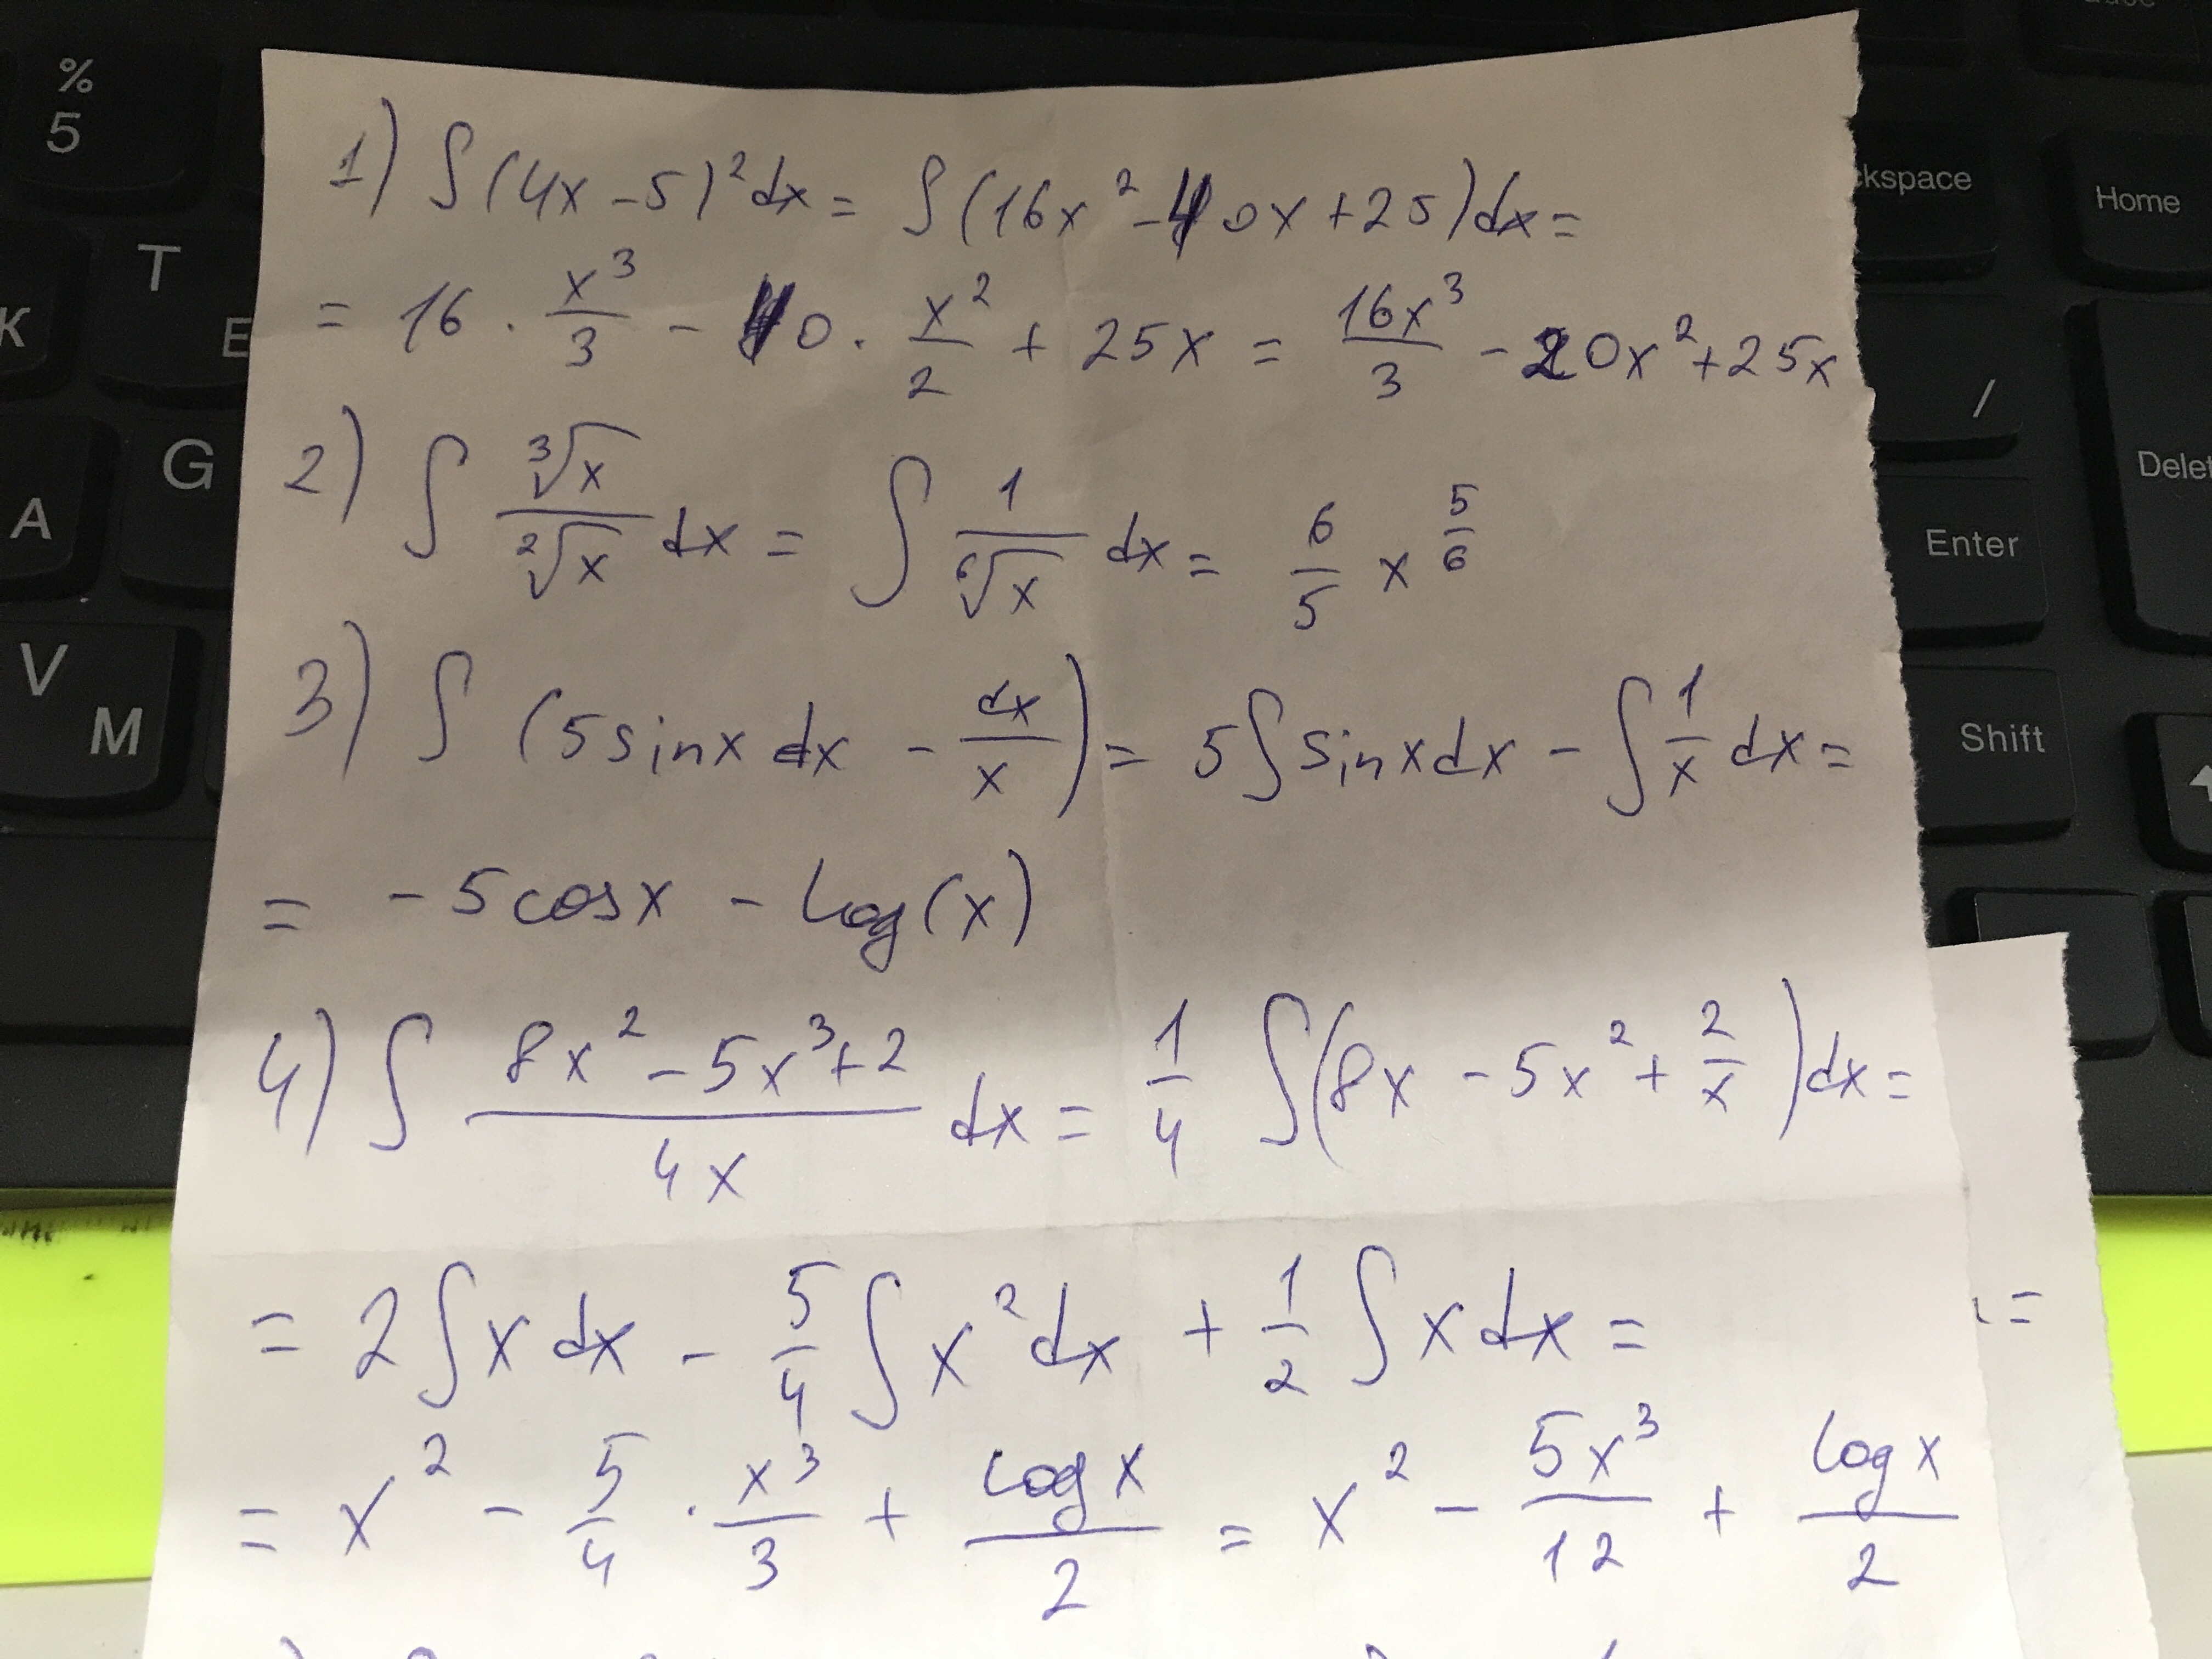 % 5
T
K
E
G
A
V
M
kspace
Home
/
Delet
Enter
Shift
1) ∫(4x-5)²dx = ∫(16x²-40x+25)dx =
= 16 · x³/3 - 40 · x²/2 + 25x = 16x³/3 - 20x²+25x
2) ∫ ³√x/²√x dx = ∫ 1/⁶√x dx = 6/5 x^(5/6)
3) ∫ (5sinx dx - dx/x) = 5∫sinxdx - ∫1/x dx =
= -5cosx - log(x)
4) ∫ (8x²-5x³+2)/4x dx = 1/4 ∫(8x - 5x² + 2/x)dx =
= 2∫x dx - 5/4 ∫x²dx + 1/2 ∫x dx =
= x² - 5/4 · x³/3 + log x/2 = x² - 5x³/12 + log x/2
=